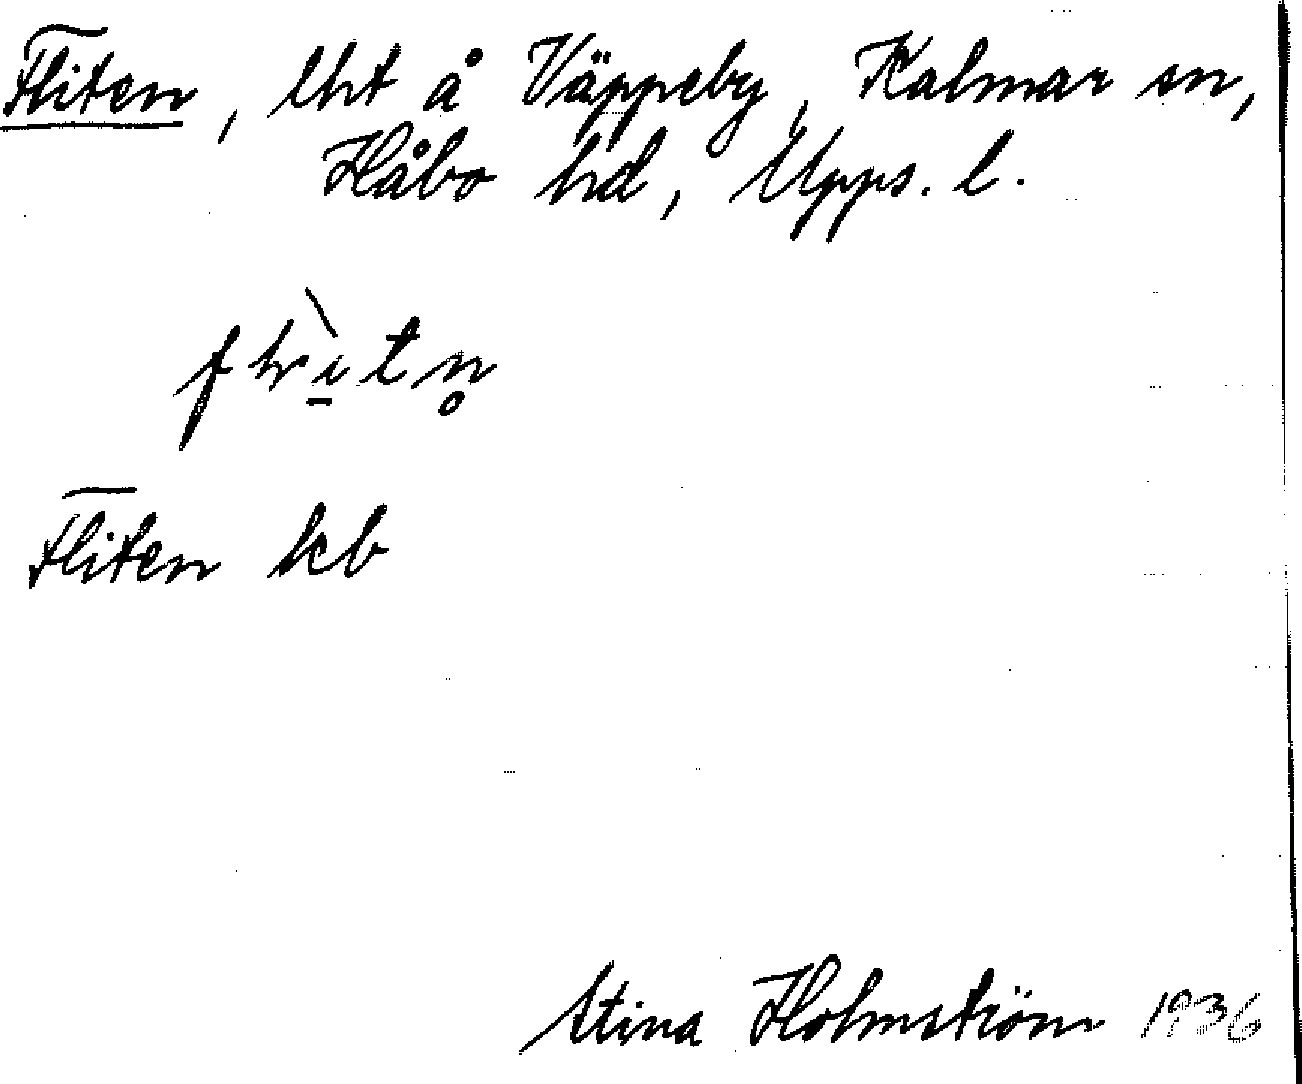 Fliten, lht å Väppeby, Kalmar sn,
Håbo hd, Upps. l.
Fliten kb
Stina Holmström 1936